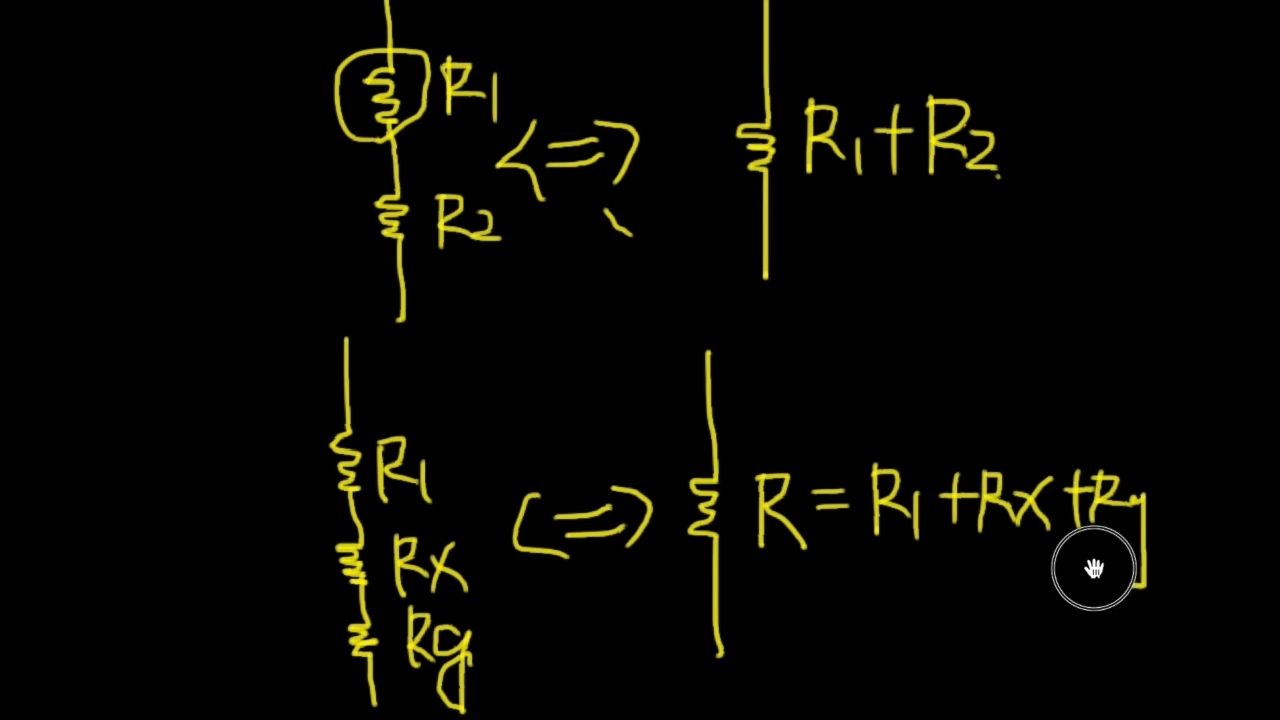 R1
<=> R1+R2
R2
R1
<=> R = R1 + Rx + Ry
Rx
Ry